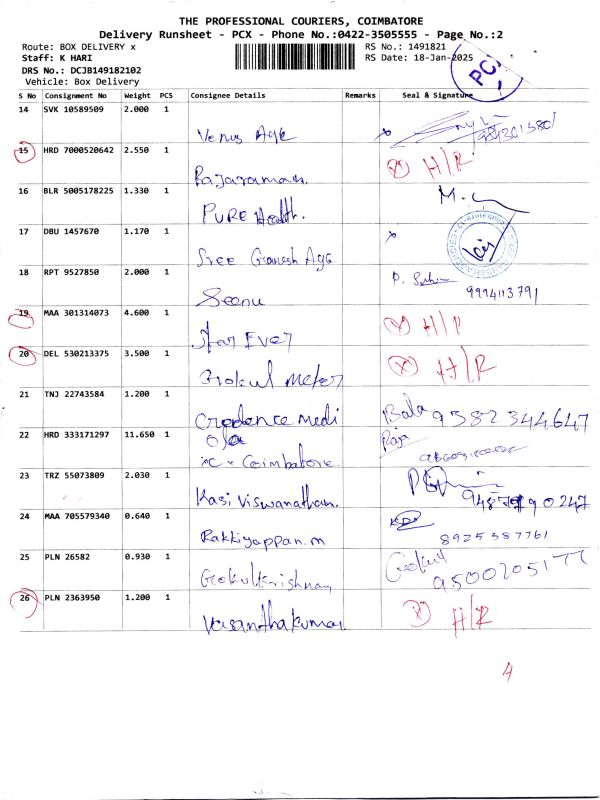 THE PROFESSIONAL COURIERS, COIMBATORE
Delivery Runsheet - PCX - Phone No.:0422-3505555 - Page No.:2
Route: BOX DELIVERY x RS No.: 1491821
Staff: K HARI RS Date: 18-Jan-2025
DRS No.: DCJB149182102
Vehicle: Box Delivery
PC
S No Consignment No Weight PCS Consignee Details Remarks Seal & Signature
14 SVK 10589509 2.000 1
Venus Age
15 HRD 7000520642 2.550 1 H/R
Rajaramam.
16 BLR 5005178225 1.330 1
PURE Health.
17 DBU 1457670 1.170 1
Sree Ganesh Age
18 RPT 9527850 2.000 1
Seenu 9994113791
19 MAA 301314073 4.600 1 H/R
Star Ever
20 DEL 530213375 3.500 1 H/R
Gokul Meter
21 TNJ 22743584 1.200 1 Bala 9582344647
Credence Medi
22 HRD 333171297 11.650 1 Raja
Coimbatore.
23 TRZ 55073809 2.030 1
Kasi Viswanathan.
24 MAA 705579340 0.640 1
Rakkiyappan.m 8925387761
25 PLN 26582 0.930 1 Gokul
Gokulkrishnan 9500205177
26 PLN 2363950 1.200 1 H/R
Vasanthakumar
4